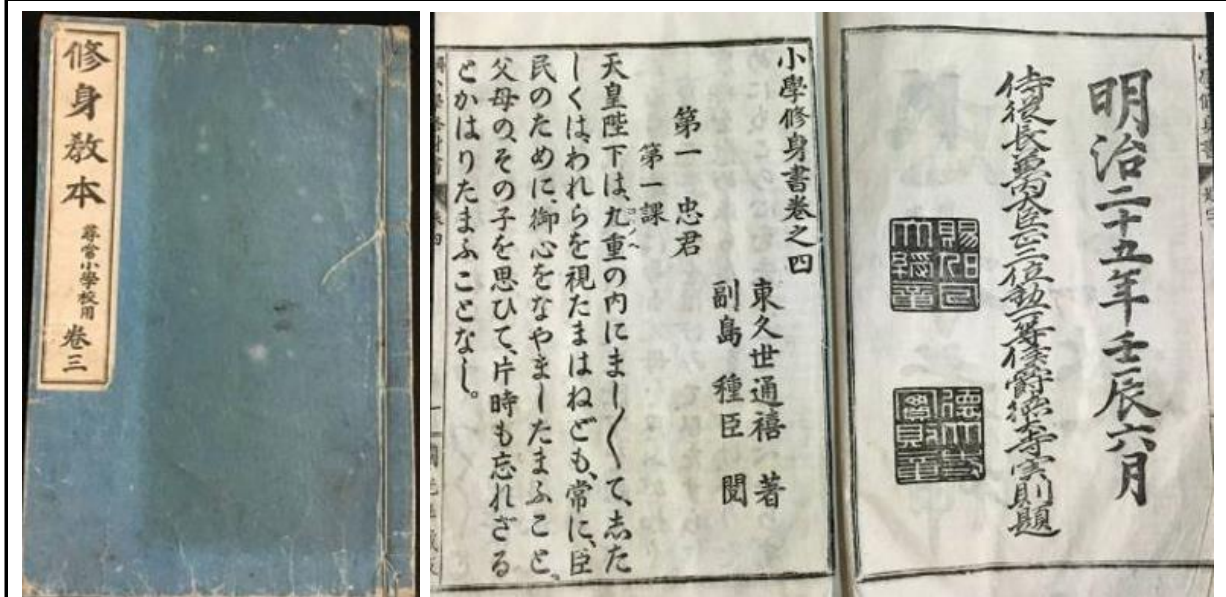 修身教本
尋常小學校用
卷三
明治二十五年壬辰六月
侍從長兼内大臣正三位勲一等侯爵徳大寺実則題
小學修身書卷之四
東久世通禧 著
副島種臣 閲
第一 忠君
第一課
天皇陛下は、九重の内にまし〱て、志た
しくは、われらを視たまはねども、常に、臣
民のために、御心をなやましたまふこと、
父母の、その子を思ひて、片時も忘れざる
とかはりたまふことなし。